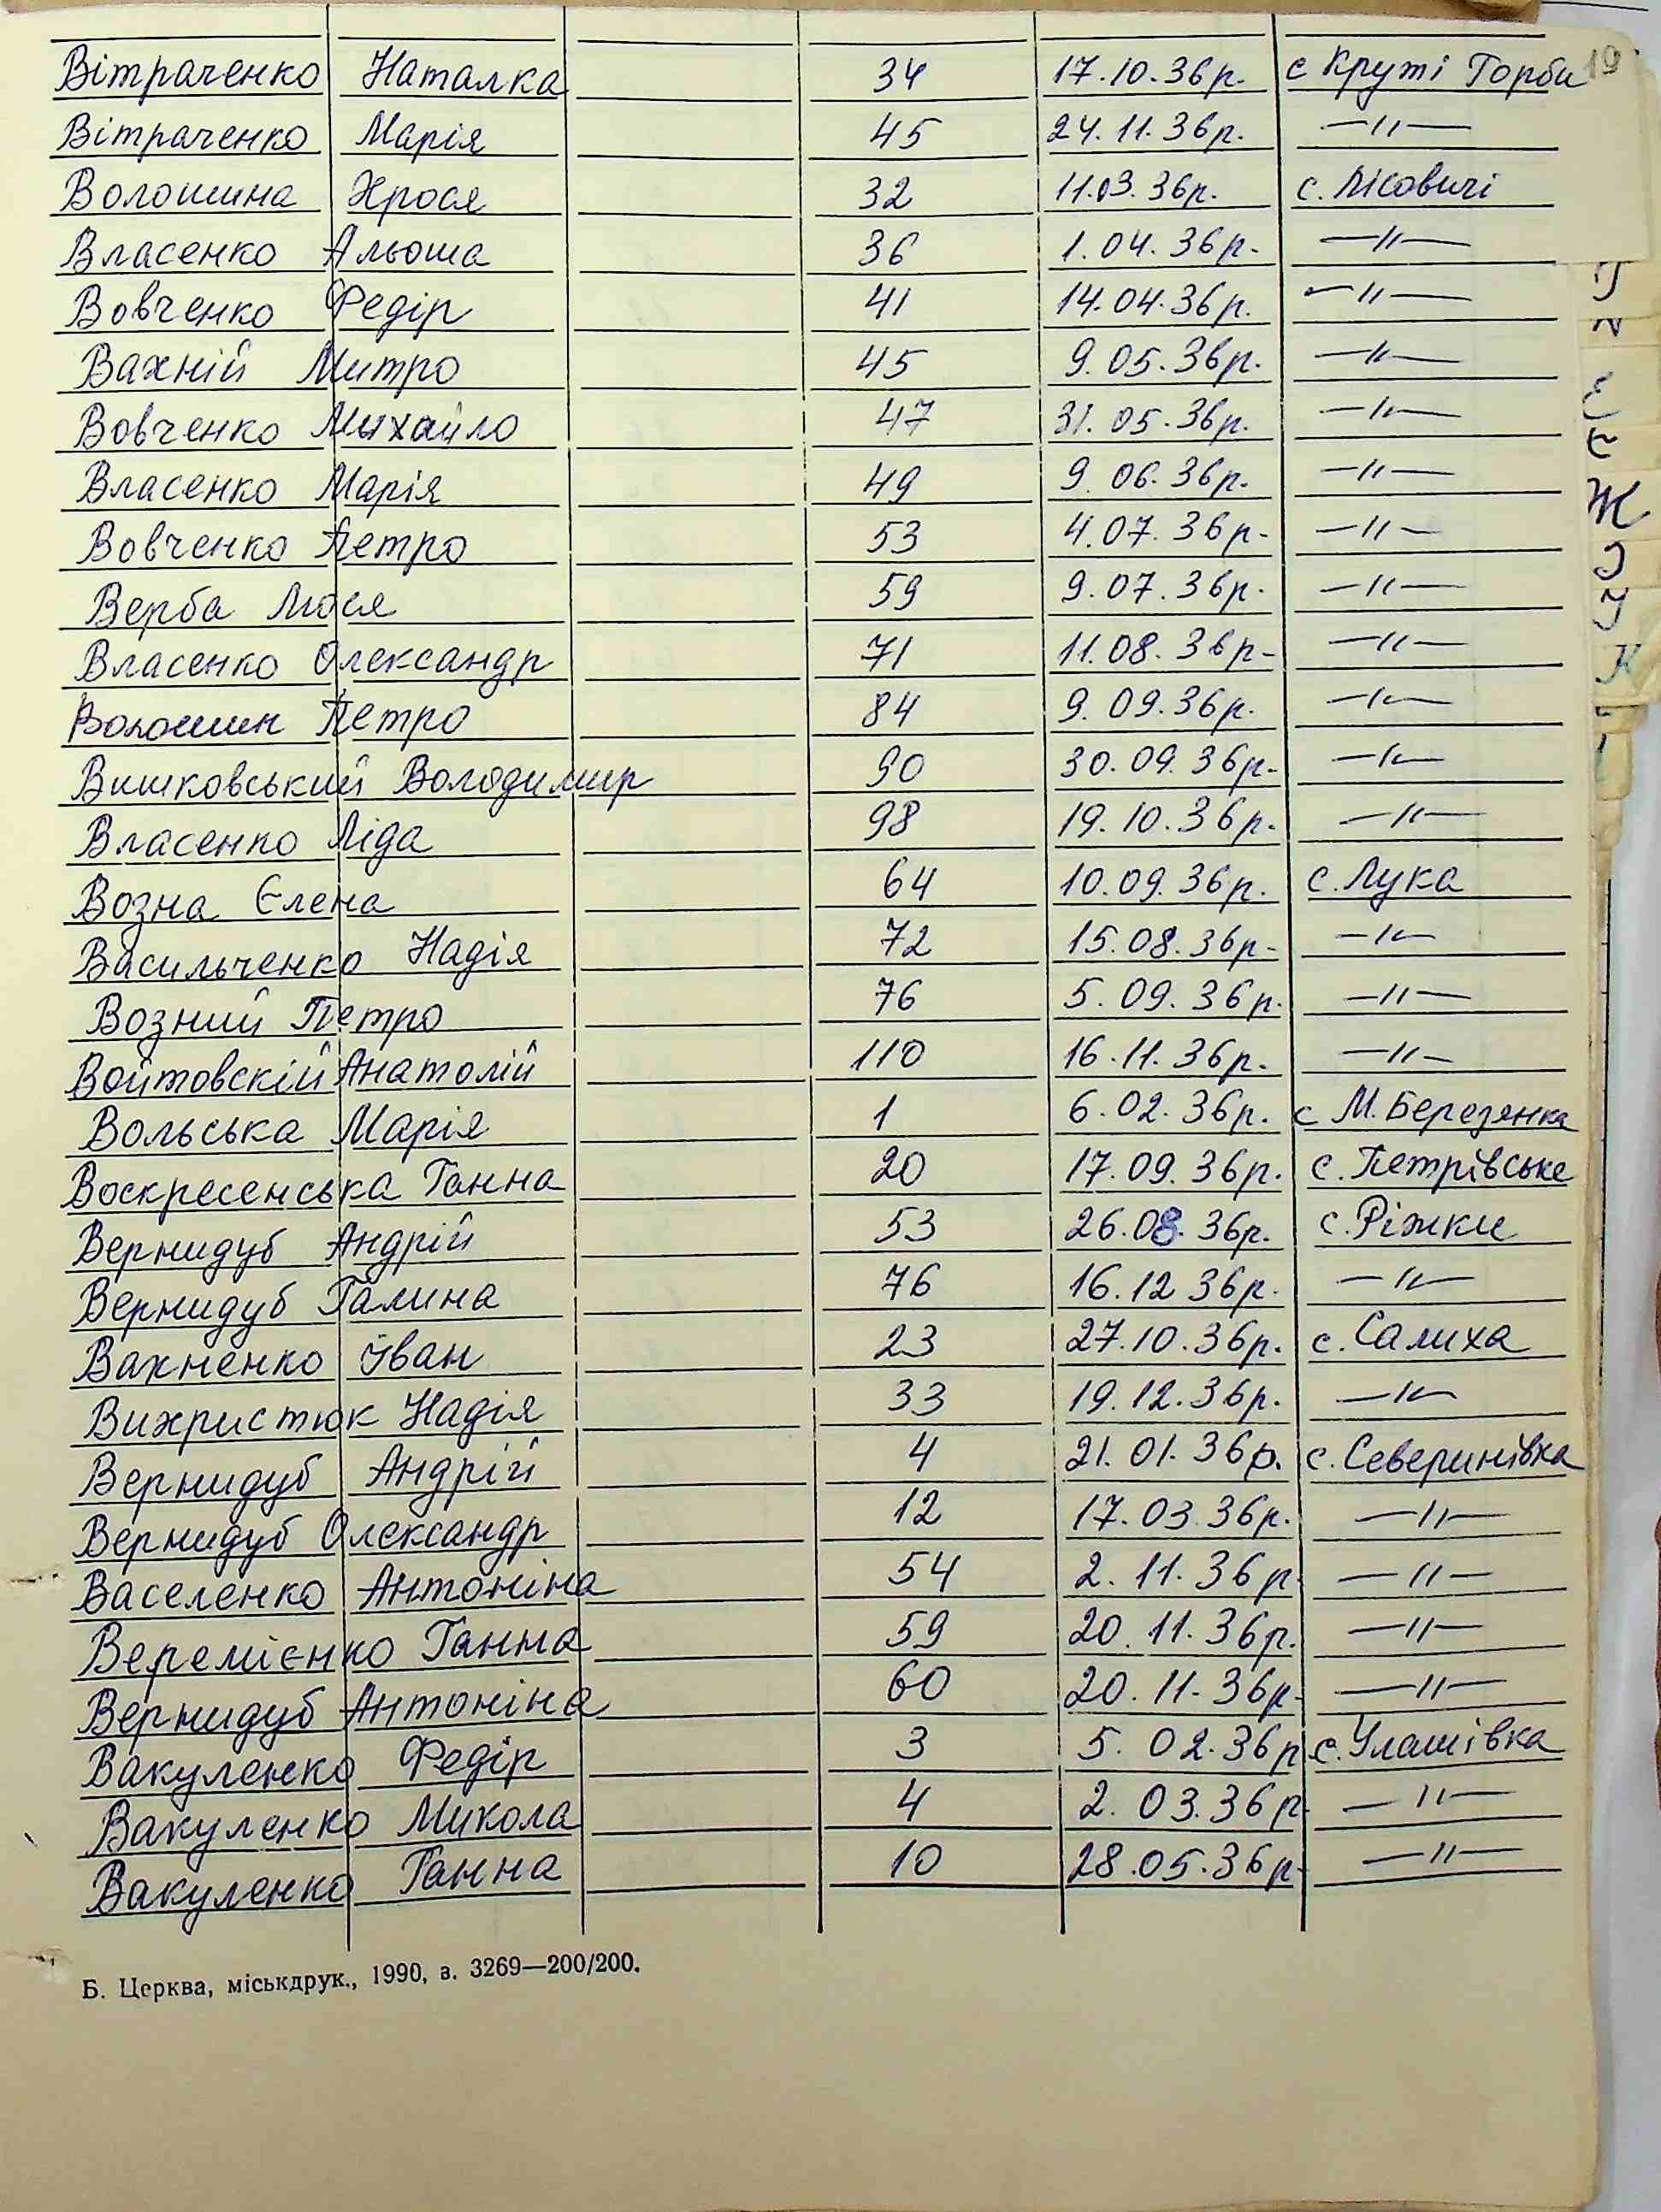 19
Вітраченко Наталка 34 17.10.36р. с Круті Горби
Вітраченко Марія 45 24.11.36р. —〃—
Волошина Хрося 32 11.03.36р. с. Лісовичі
Власенко Альоша 36 1.04.36р. —〃—
Вовченко Федір 41 14.04.36р. —〃—
Вахній Митро 45 9.05.36р. —〃—
Вовченко Михайло 47 31.05.36р. —〃—
Власенко Марія 49 9.06.36р. —〃—
Вовченко Петро 53 4.07.36р. —〃—
Верба Люся 59 9.07.36р. —〃—
Власенко Олександр 71 11.08.36р. —〃—
Волошин Петро 84 9.09.36р. —〃—
Вишковський Володимир 90 30.09.36р. —〃—
Власенко Ліда 98 19.10.36р. —〃—
Возна Єлена 64 10.09.36р. с. Лука
Васильченко Надія 72 15.08.36р. —〃—
Возний Петро 76 5.09.36р. —〃—
Войтовскій Анатолій 110 16.11.36р. —〃—
Вольська Марія 1 6.02.36р. с М. Березянка
Воскресенська Ганна 20 17.09.36р. с. Петрівське
Вернидуб Андрій 53 26.08.36р. с. Ріжки
Вернидуб Галина 76 16.12 36р. —〃—
Вахненко Іван 23 27.10.36р. с. Салиха
Вихристюк Надія 33 19.12.36р. —〃—
Вернидуб Андрій 4 21.01.36р. с. Северинівка
Вернидуб Олександр 12 17.03.36р. —〃—
Васеленко Антоніна 54 2.11.36р. —〃—
Веремієнко Ганна 59 20.11.36р. —〃—
Вернидуб Антоніна 60 20.11.36р. —〃—
Вакуленко Федір 3 5.02.36р с. Улашівка
Вакуленко Микола 4 2.03.36р. —〃—
Вакуленко Ганна 10 28.05.36р. —〃—
Б. Церква, міськдрук., 1990, з. 3269—200/200.
Є
Ж
І
К